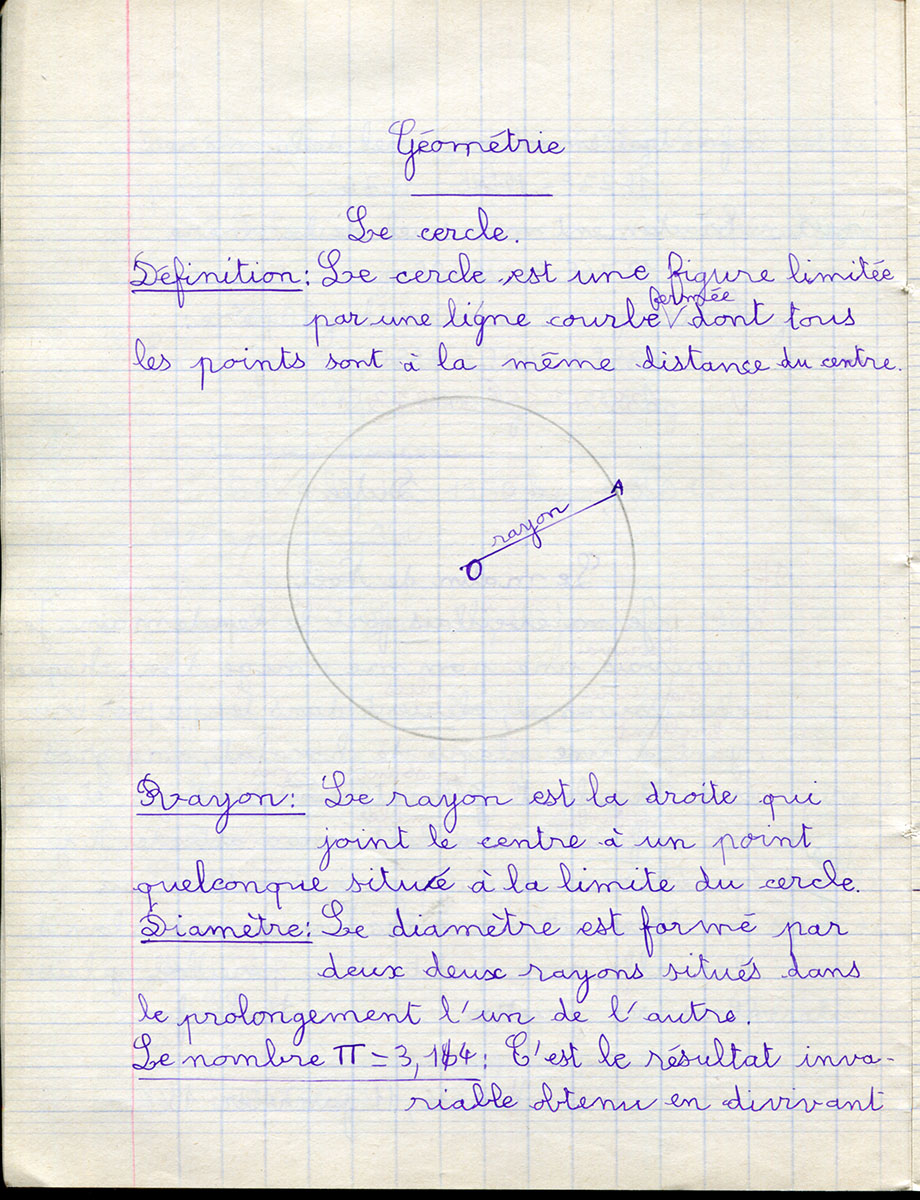 Géométrie
Le cercle.
Définition: Le cercle est une figure limitée
fermée
par une ligne courbe √ dont tous
les points sont à la même distance du centre.
A
rayon
O
Rayon: Le rayon est la droite qui
joint le centre à un point
quelconque situé à la limite du cercle.
Diamètre: Le diamètre est formé par
deux deux rayons situés dans
le prolongement l'un de l'autre.
Le nombre π = 3,14: C'est le résultat inva-
riable obtenu en divivant